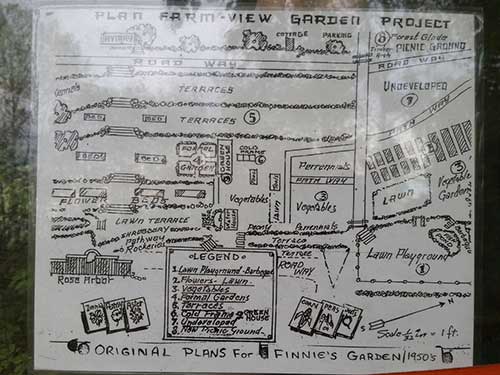 PLAN FARM-VIEW GARDEN PROJECT
COTTAGE PARKING
8 Forest Glade
PICNIC GROUND
ROAD WAY
ROAD WAY
Kennels
TERRACES
UNDEVELOPED
7
TERRACES 5
PATH WAY
BED BED
BEDS BEDS
FORMAL
4
GARDEN
GREEN HOUSE
COLD FRAME
6
Perrennials
PATH WAY
3
Vegetables
Vegetables
3
Vegetable Gardens
FLOWER BEDS
LAWN
LAWN TERRACE
SHRUBBERY
Pathway
Rockeries
Peony Perrennials
Terrace
Rose Arbor
ROAD WAY
Lawn Playground
1
LEGEND
1. Lawn Playground-Barbeque
2. Flowers - Lawn
3. Vegetables
4. Formal Gardens
5. Terraces
6. Cold Frame & GREEN HOUSE
7. Undeveloped
8. New Picnic Ground.
Scale 1/32 in = 1 ft.
ORIGINAL PLANS For FINNIE'S GARDEN/1950's